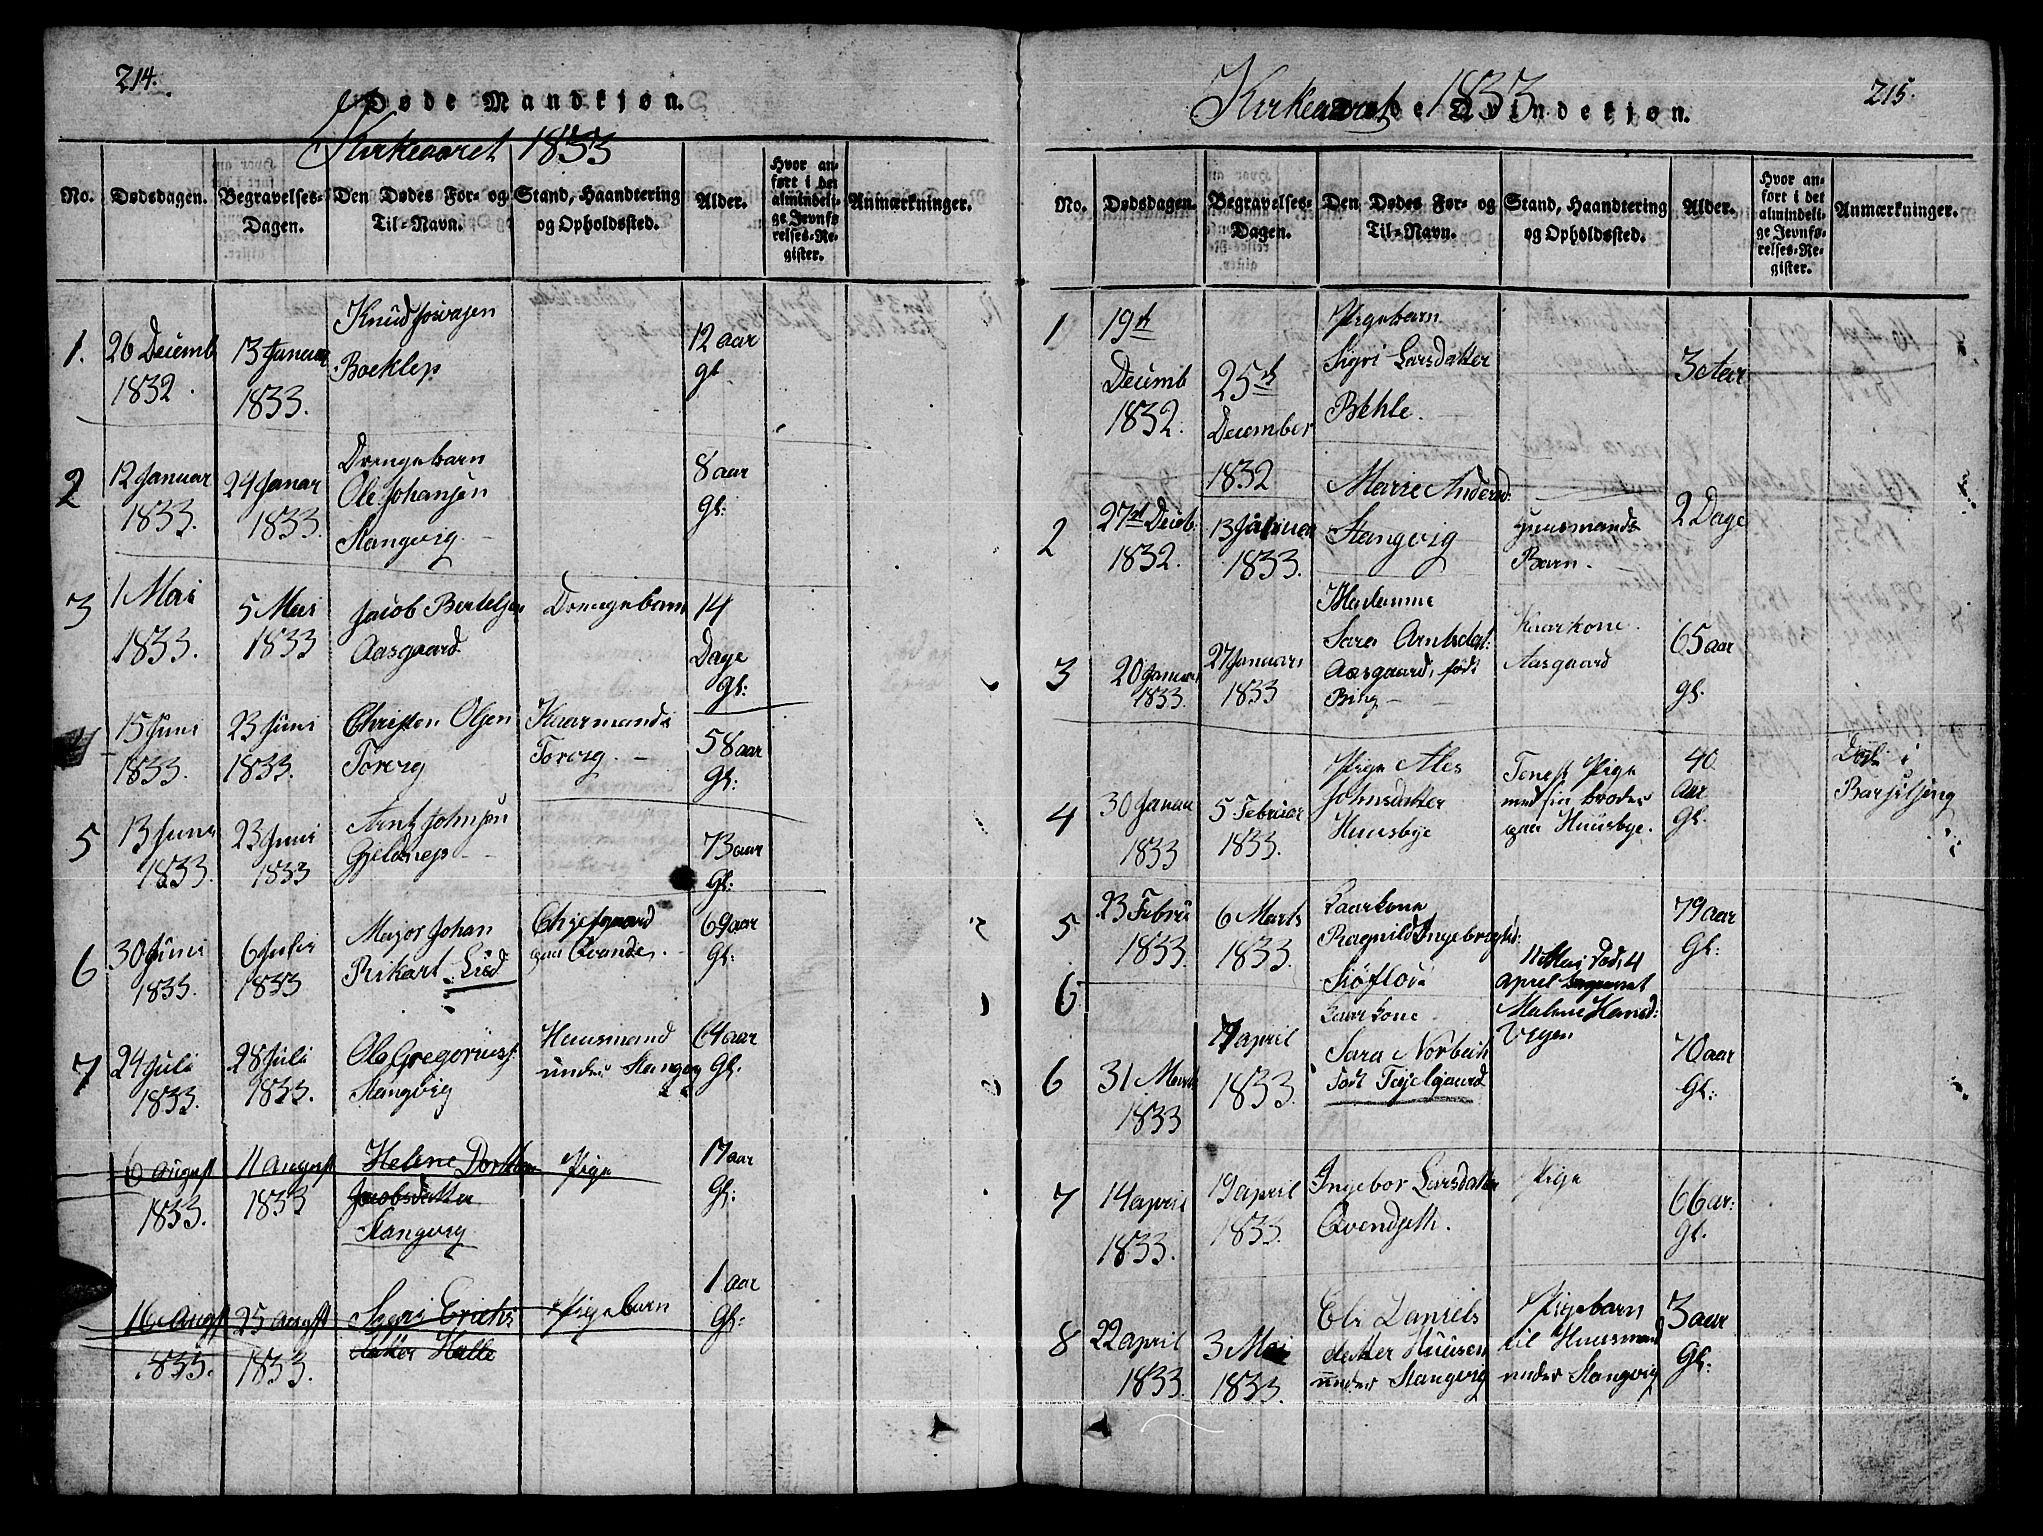 214.
Døde Mandkjøn.
Kirkeaaret 1833
No. Dødsdagen. Begravelses-Dagen. Den Dødes For- og Til-Navn. Stand, Haandtering og Opholdssted. Alder. Hvor anført i det almindelige Jevnførelses-Register. Anmærkninger.
1. 26 Decemb 1832. 13 Januar 1833. Knud
Boeklep
12 aar gl
2 12 Januar 1833. 24 Janar 1833. Drengebarn
Ole Johansen
Stangvig.
8 aar gl:
3 1 Mai 1833. 5 Mai 1833 Jacob Bertelsen
Aasgaard
Drengebarn 14 Dage gl:
4 15 Juni 1833. 23 Juni 1833. Christen Olsen
Torvig
Kaarmand
Torvig. 58 aar Gl:
5 13 Juni 1833. 23 Juni 1833 Arnt Johnsen
73 aar Gl:
6 30 Juni 1833. 6 Juli 1833 Major Johan
Rikart Lied
paa Qvande. 69 aar Gl:
7 24 Juli 1833. 28 Juli 1833. Ole Gregoriuss:
Stangvig
Huusmand
under Stangvig 64 aar Gl.
6 August 1833. 11 August 1833 Helene
Jacobsdatter
Stangvig
Pige 17 aar Gl:
16 Augst 1833. 25 Augst 1833. Sigri Erichs
datter Halle
Pigebarn 1 aar Gl:
215.
Døde Qvindekjøn.
Kirkeaaret 1833
No. Dødsdagen. Begravelses-Dagen. Den Dødes For- og Til-Navn. Stand, Haandtering og Opholdssted. Alder. Hvor anført i det almindelige Jevnførelses-Register. Anmærkninger.
1 19de Decemb 1832. 25de December 1832 Pigebarn
Sigri Larsdatter
Behle.
3 Aar
2 27de Decb. 1832. 13 Januar 1833. Marie Andersd:
Stangvig
Huusmands
Barn. 2 Dage
3 20 Januar 1833. 27 Januari 1833 Madamme
Sara Arntsdat:
Aasgaard, født
Bing
Kaarkone.
Aasgaard 65 aar gl.
4 30 Janua 1833 5 Februar 1833. Pige Ales
Johnsdatter
Huusbye
Pige
med sin broder
paa Huusbye. 40 Aar Gl. Døde i
Barselseng
5 23 Febru 1833. 6 Marts 1833. Kaarkone
Ragnild Ingebrigtsd:
79 aar Gl:
6 11 Mai Død, 4
april begravet
Malene Hansd:
6 31 Marts 1833 7 april 1833. Kaarkone
Sara Norbech
født Teijelgaard
70 aar Gl:
7 14 april 1833. 19 april 1833. Ingebor Larsdatter
Qvendseth.
Pige 66 ar: Gl.
8 22 april 1833. 3 Mai 1833 Daniels
datter Huusen
under Stangvig
Pigebarn
til Huusmand
under Stangvig 3 aar Gl: